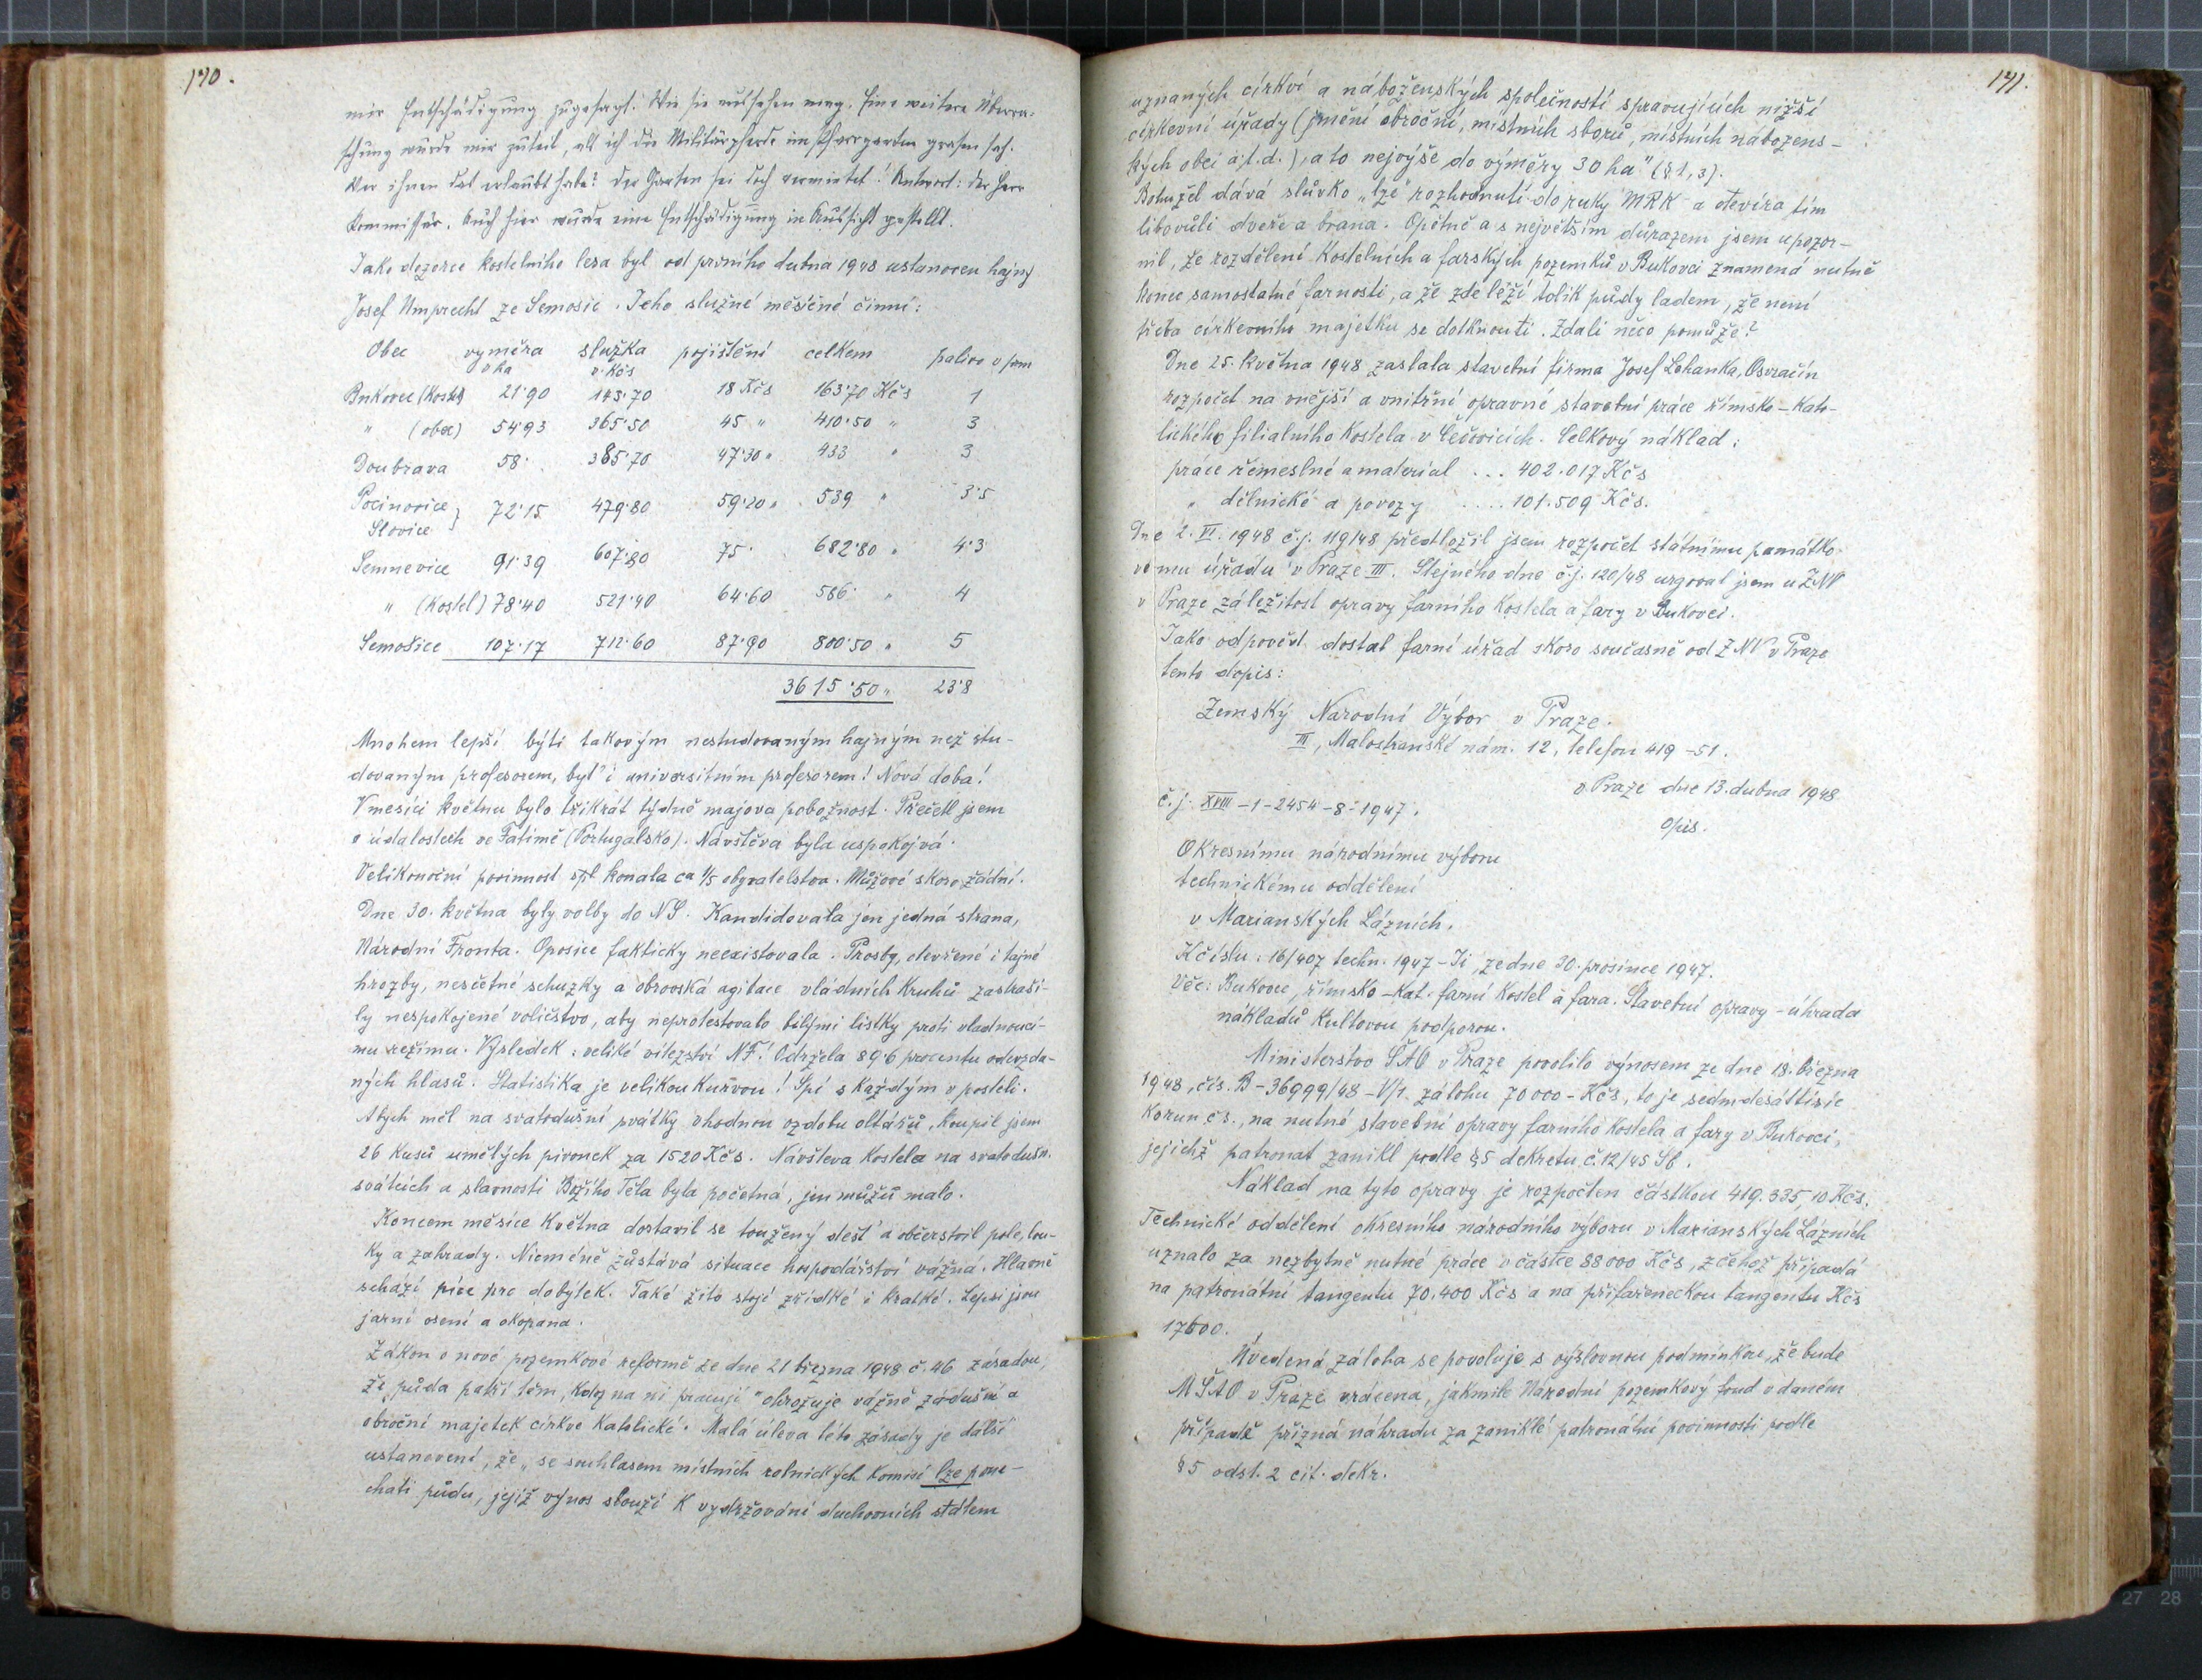 170.
mir Entschädigung zugesagt. Wie sie aussehen mag. Eine weitere Überra-
schung wurde mir zuteil, als ich die Militärpferde im Pfarrgarten grasen sah.
Wer ihnen das erlaubt habe? Der Garten sei doch vermietet! Antwort: der Herr
Kommissär. Auch hier wurde eine Entschädigung in Aussicht gestellt.
Jako dozorce kostelního lesa byl od prvního dubna 1948 ustanoven hajný
Josef Umprecht ze Semošic. Jeho služné měsíčné činní:
Obec výměra v ha služka v Kčs pojištění celkem palivo v prm
Bukovec (Kostel) 21·90 145·70 18 Kčs 163·70 Kčs 1
" (obec) 54·93 365·50 45 " 410·50 " 3
Doubrava 58· 385·70 47·30 " 433 " 3
Pocinovice } 72·15 479·80 59·20 " 539 " 3·5
Slovice
Semnevice 91·39 607·80 75· 682·80 " 4·3
" (Kostel) 78·40 521·40 64·60 586· " 4
Semošice 107·17 712·60 87·90 800·50 " 5
3615·50 " 23·8
Mnohem lepší býti takovým nestudovaným hajným než stu-
dovaným profesorem, byť i universitním profesorem! Nová doba!
V mesíci květnu bylo třikrát týdně majova pobožnost. Přečetl jsem
o událostech ve Fatimě (Portugalsko). Návštěva byla uspokojvá.
Velikonoční povinnost spl. konala ca 1/5 obyvatelstva. Mužové skoro žádní.
Dne 30. května byly volby do NS. Kandidovala jen jedná strana,
Národní Fronta. Oposice fakticky neexistovala. Prosby, otevřené i tajné
hrozby, nesčetné schuzky a obrovská agitace vládních kruhů zastraši-
ly nespokojené voličstvo, aby neprotestovalo bílými lístky proti vladnoucí-
mu režimu. Výsledek: veliké vítezství NF! Održela 89·6 procentu odevzda-
ných hlasů. Statistika je velikou kurvou! Spí s každým v posteli.
Abych měl na svatodušní svátky vhodnou ozdobu oltářů, koupil jsem
26 kusů umělých pivonek za 1520 Kčs. Návšteva kostela na svatodušn.
svátcích a slavnosti Božího Těla byla početná, jen mužů malo.
Koncem měsíce května dostavil se toužený dešť a občerstvil pole, lou-
ky a zahrady. Nicméně zůstává situace hospodářství vážná. Hlavně
schází píce pro dobýtek. Také žito stojí zřídké i krátké. Lepsi jsou
jarní osení a okopana.
Zákon o nové pozemkové reformě ze dne 21 března 1948 č. 46 zásadou,
že „půda patří těm, kdož na ní pracují" ohrožuje vážně zádušní a
obroční majetek církve katolické. Malá úleva této zásady je další
ustanovení, že „se souhlasem místních rolnických komisí lze pone-
chati půdu, jejíž výnos slouží k vydržování duchovních státem
171.
uznaných církví a náboženských společností spravujících nižší
církevní úřady (jmění obroční, místních sborů, místních nábožens-
kých obcí a.t.d.), a to nejvýše do výměry 30 ha" (§ 1, 3).
Bohužel dává slůvko „lze" rozhodnutí do ruky MRK a otevírá tím
libovůli dveře a brana. Opětně a s největším důrazem jsem upozor-
nil, že rozdělení kostelních a farských pozemků v Bukovci znamená nutně
konec samostatné farnosti, a že zde léží tolik půdy ladem, že není
třeba církevního majetku se dotknouti. Zdali něco pomůže?
Dne 25. května 1948 zaslala stavební firma Josef Lohanka, Osvračín
rozpočet na vnější a vnitřní opravné stavební práce římsko-kato-
lického filialního kostela v Čečovicích. Celkový náklad:
práce řemeslné a material ... 402.017 Kčs
" dělnické a povozy .... 101.509 Kčs.
Dne 2. VI. 1948 č.j. 119/48 předložil jsem rozpočet státnímu památko-
vému úřadu v Praze III. Stejného dne č.j. 120/48 urgoval jsem u ZNV
v Praze záležitost opravy farního kostela a fary v Bukovci.
Jako odpověd dostal farní úřad skoro současně od ZNV v Praze
tento dopis:
Zemský Národní Výbor v Praze.
III, Malostranské nám. 12, telefon 419-51.
v Praze dne 13. dubna 1948
č.j. XVIII-1-2454-8-1947.
Opis.
Okresnímu národnímu výboru
technickému oddělení
v Marianských Lázních.
K číslu: 16/407 techn. 1947-Ji, ze dne 30. prosince 1947.
Věc: Bukovec, římsko-kat. farní kostel a fara. Stavební opravy - úhrada
nákladů kultovou podporou.
Ministerstvo ŠAO v Praze povolilo výnosem ze dne 18. března
1948, čís. B-36999/48-V/1. zálohu 70000-Kčs, to je sedmdesáttisíc
korun čs., na nutné stavební opravy farního kostela a fary v Bukovci,
jejichž patronat zanikl podle § 5 dekretu č. 12/45 Sb.
Náklad na tyto opravy je rozpočten částkou 419.335,10 Kčs.
Technické oddělení okresního národního výboru v Marianských Lázních
uznalo za nezbytně nutné práce v částce 88000 Kčs, z čehož připadá
na patronátní tangentu 70.400 Kčs a na přifařeneckou tangentu Kčs
17600.
Uvedená záloha se povoluje s výslovnou podmínkou, že bude
MŠAO v Praze vrácena, jakmile Národní pozemkový fond v daném
případě přizná náhradu za zaniklé patronátní povinnosti podle
§ 5 odst. 2 cit. dekr.